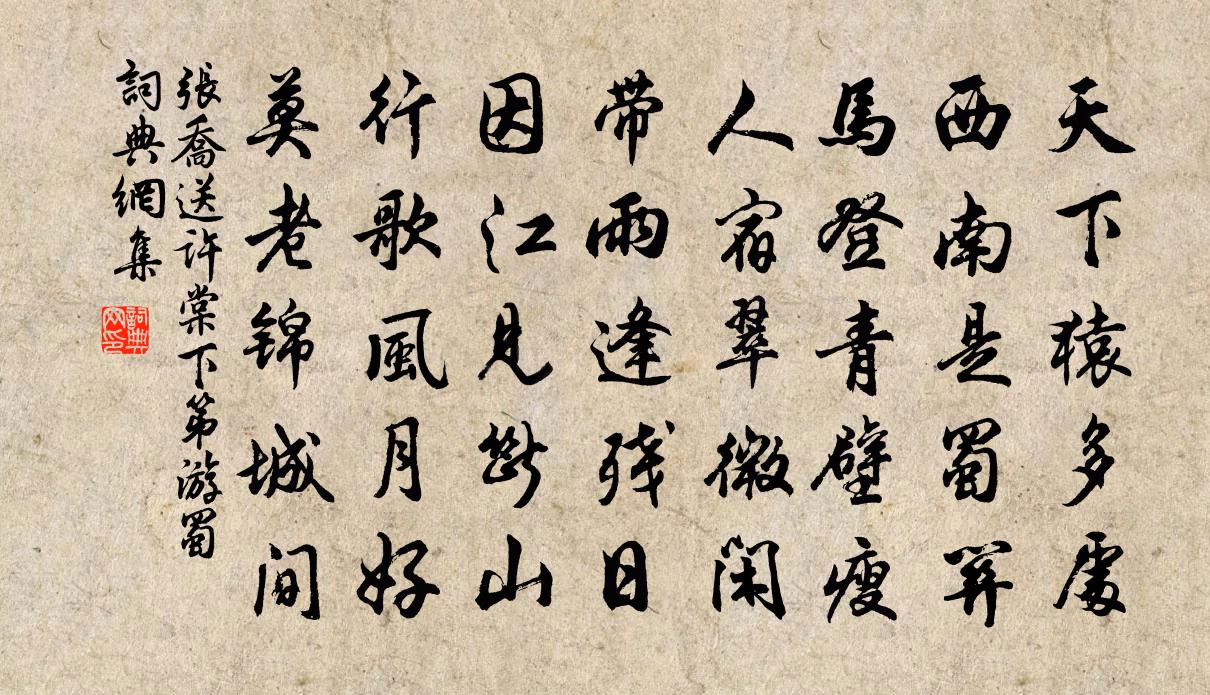 天下猿多處
西南是蜀關
馬登青壁瘦
人宿翠微閑
帶雨逢殘日
因江見斷山
行歌風月好
莫老錦城間
張喬送許棠下第游蜀
詞典網集
詞典網印